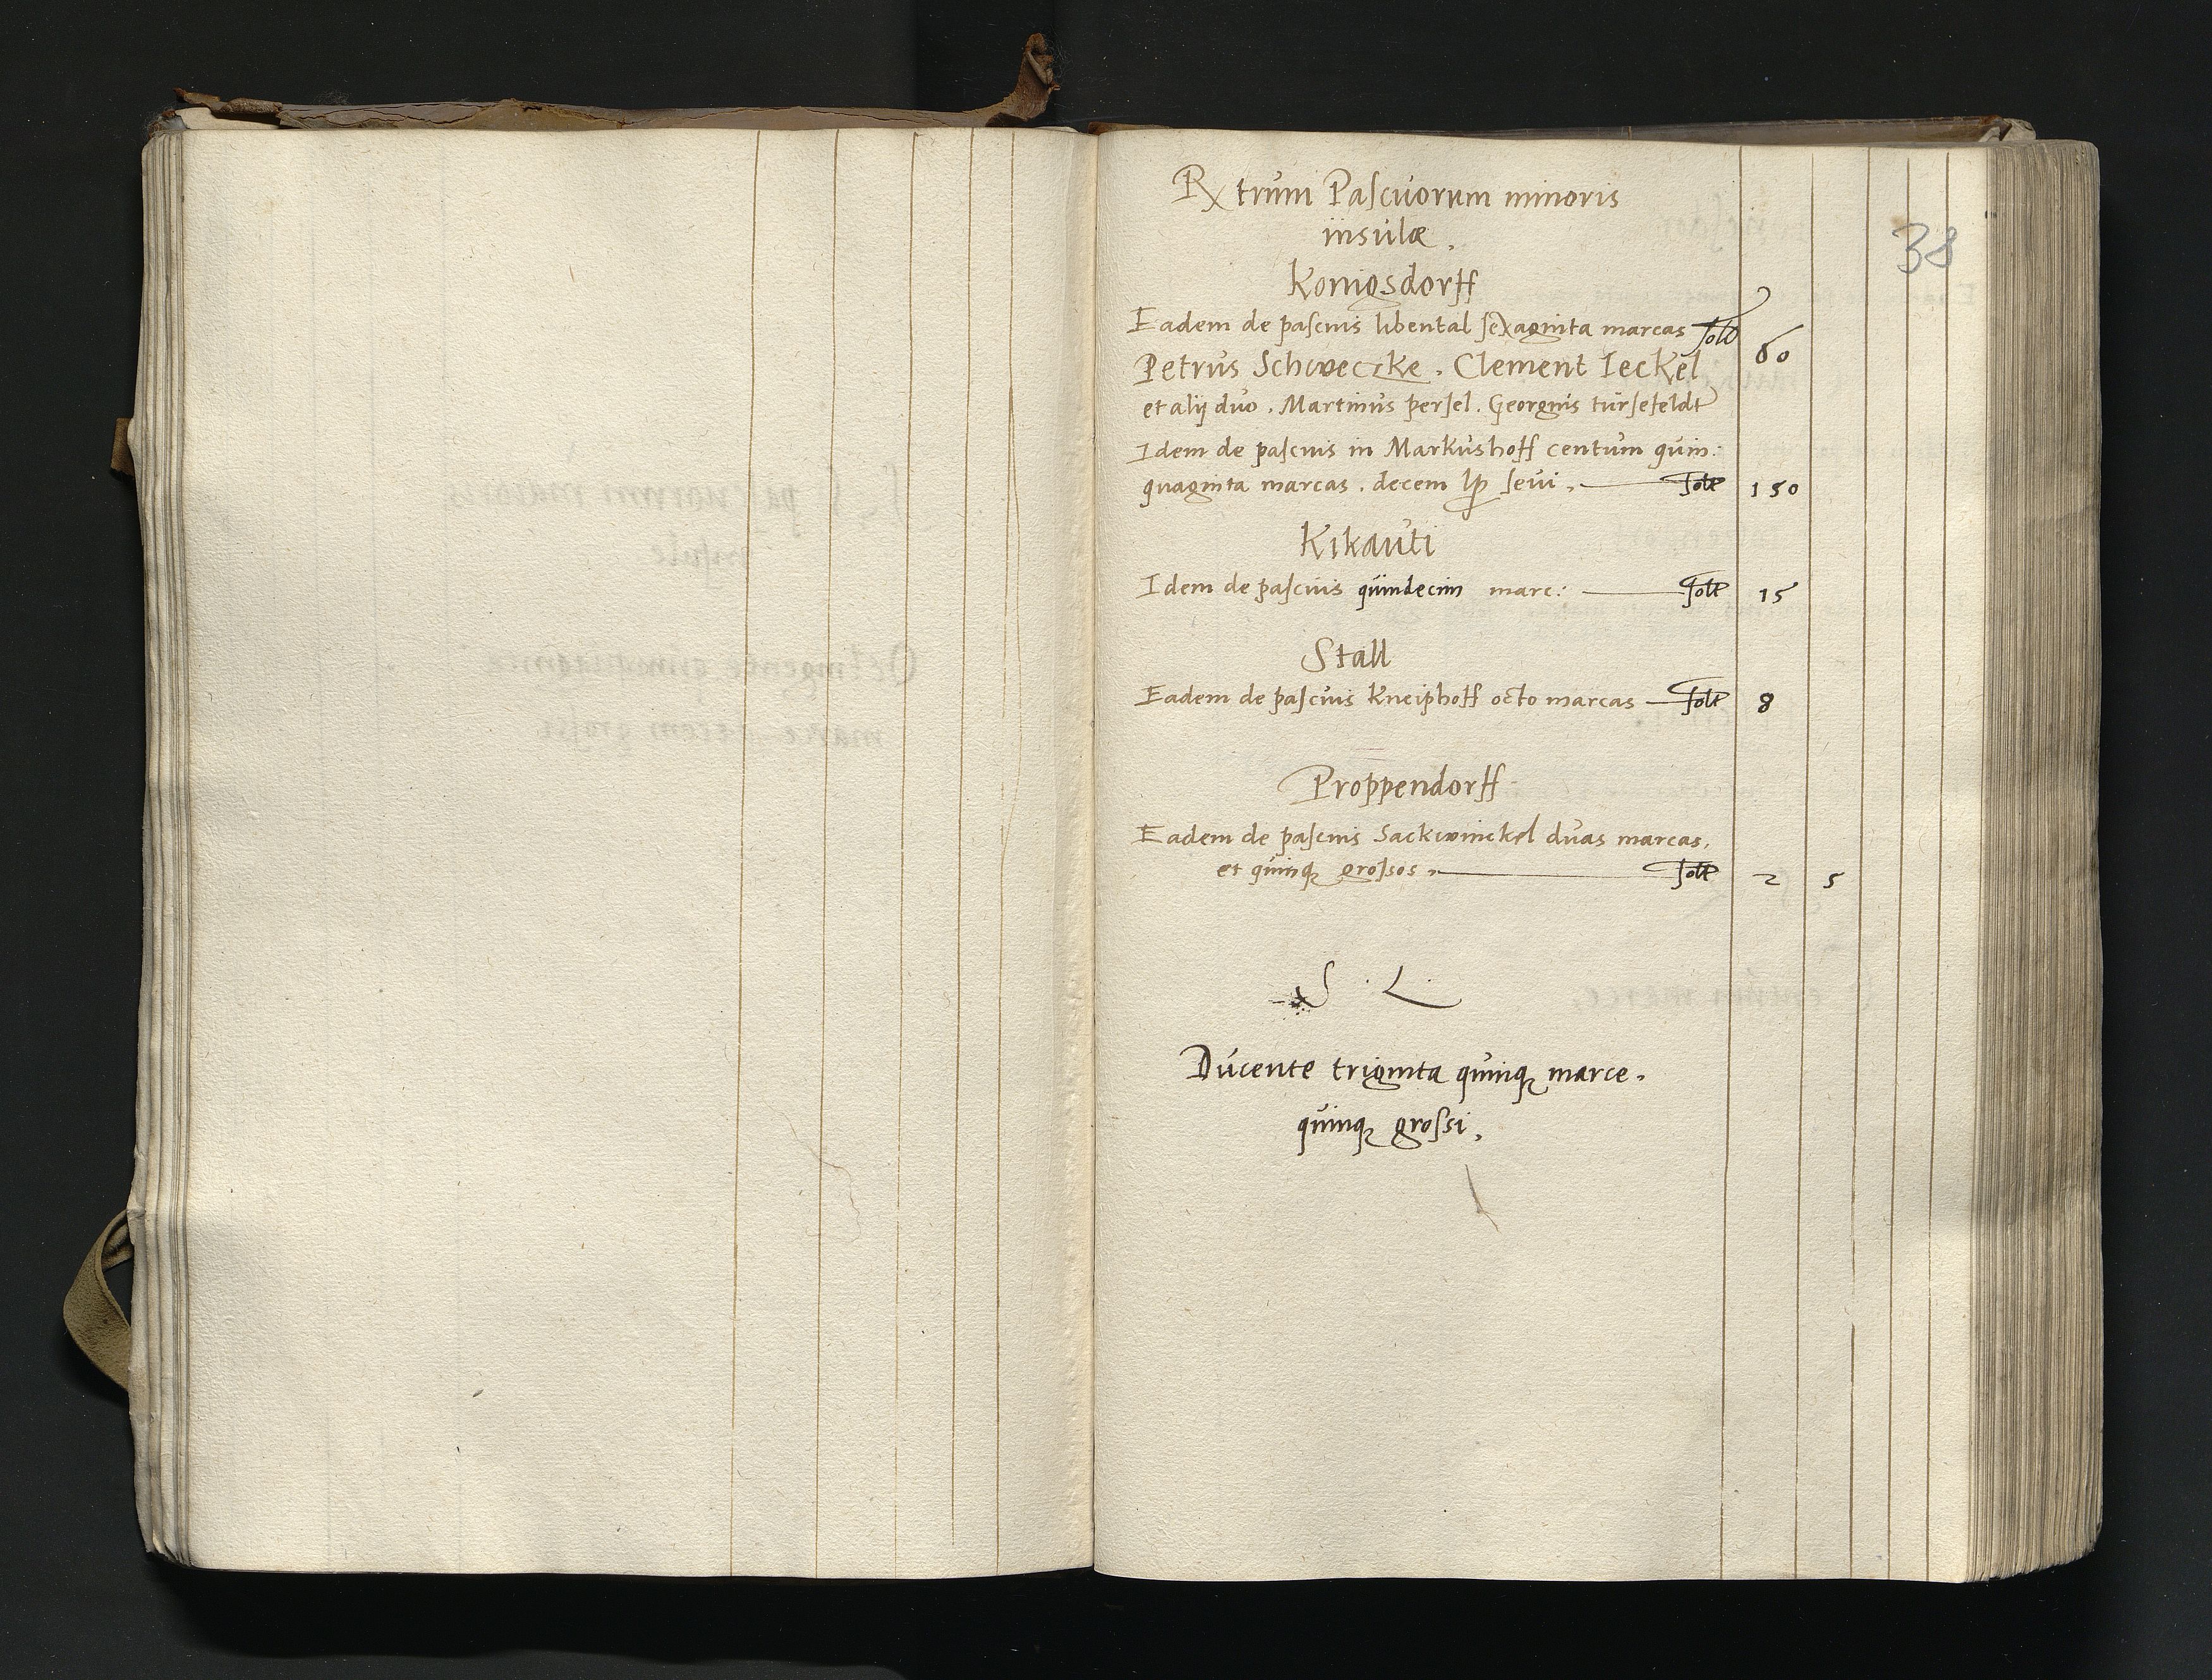 38
Rx trum Pascuorum minoris
insulæ.
Konigsdorff
Eadem de pascuis libental sexaginta marcas solt 60
Petrus Schweczke. Clement Ieckel
et alij duo. Martinus persel. Georgius türsefeldt
Idem de pascuis in Markushoff centum quin:
quaginta marcas. decem lp sevi. solt 150
Kikauti
Idem de pascuis quindecim marc: solt 15
Stall
Eadem de pascuis Kneiphoff octo marcas solt 8
Proppendorff
Eadem de pascuis Sackwinckel duas marcas,
et quinq grossos. solt 2 5
S. L.
Ducente triginta quinq marce.
quinq grossi.